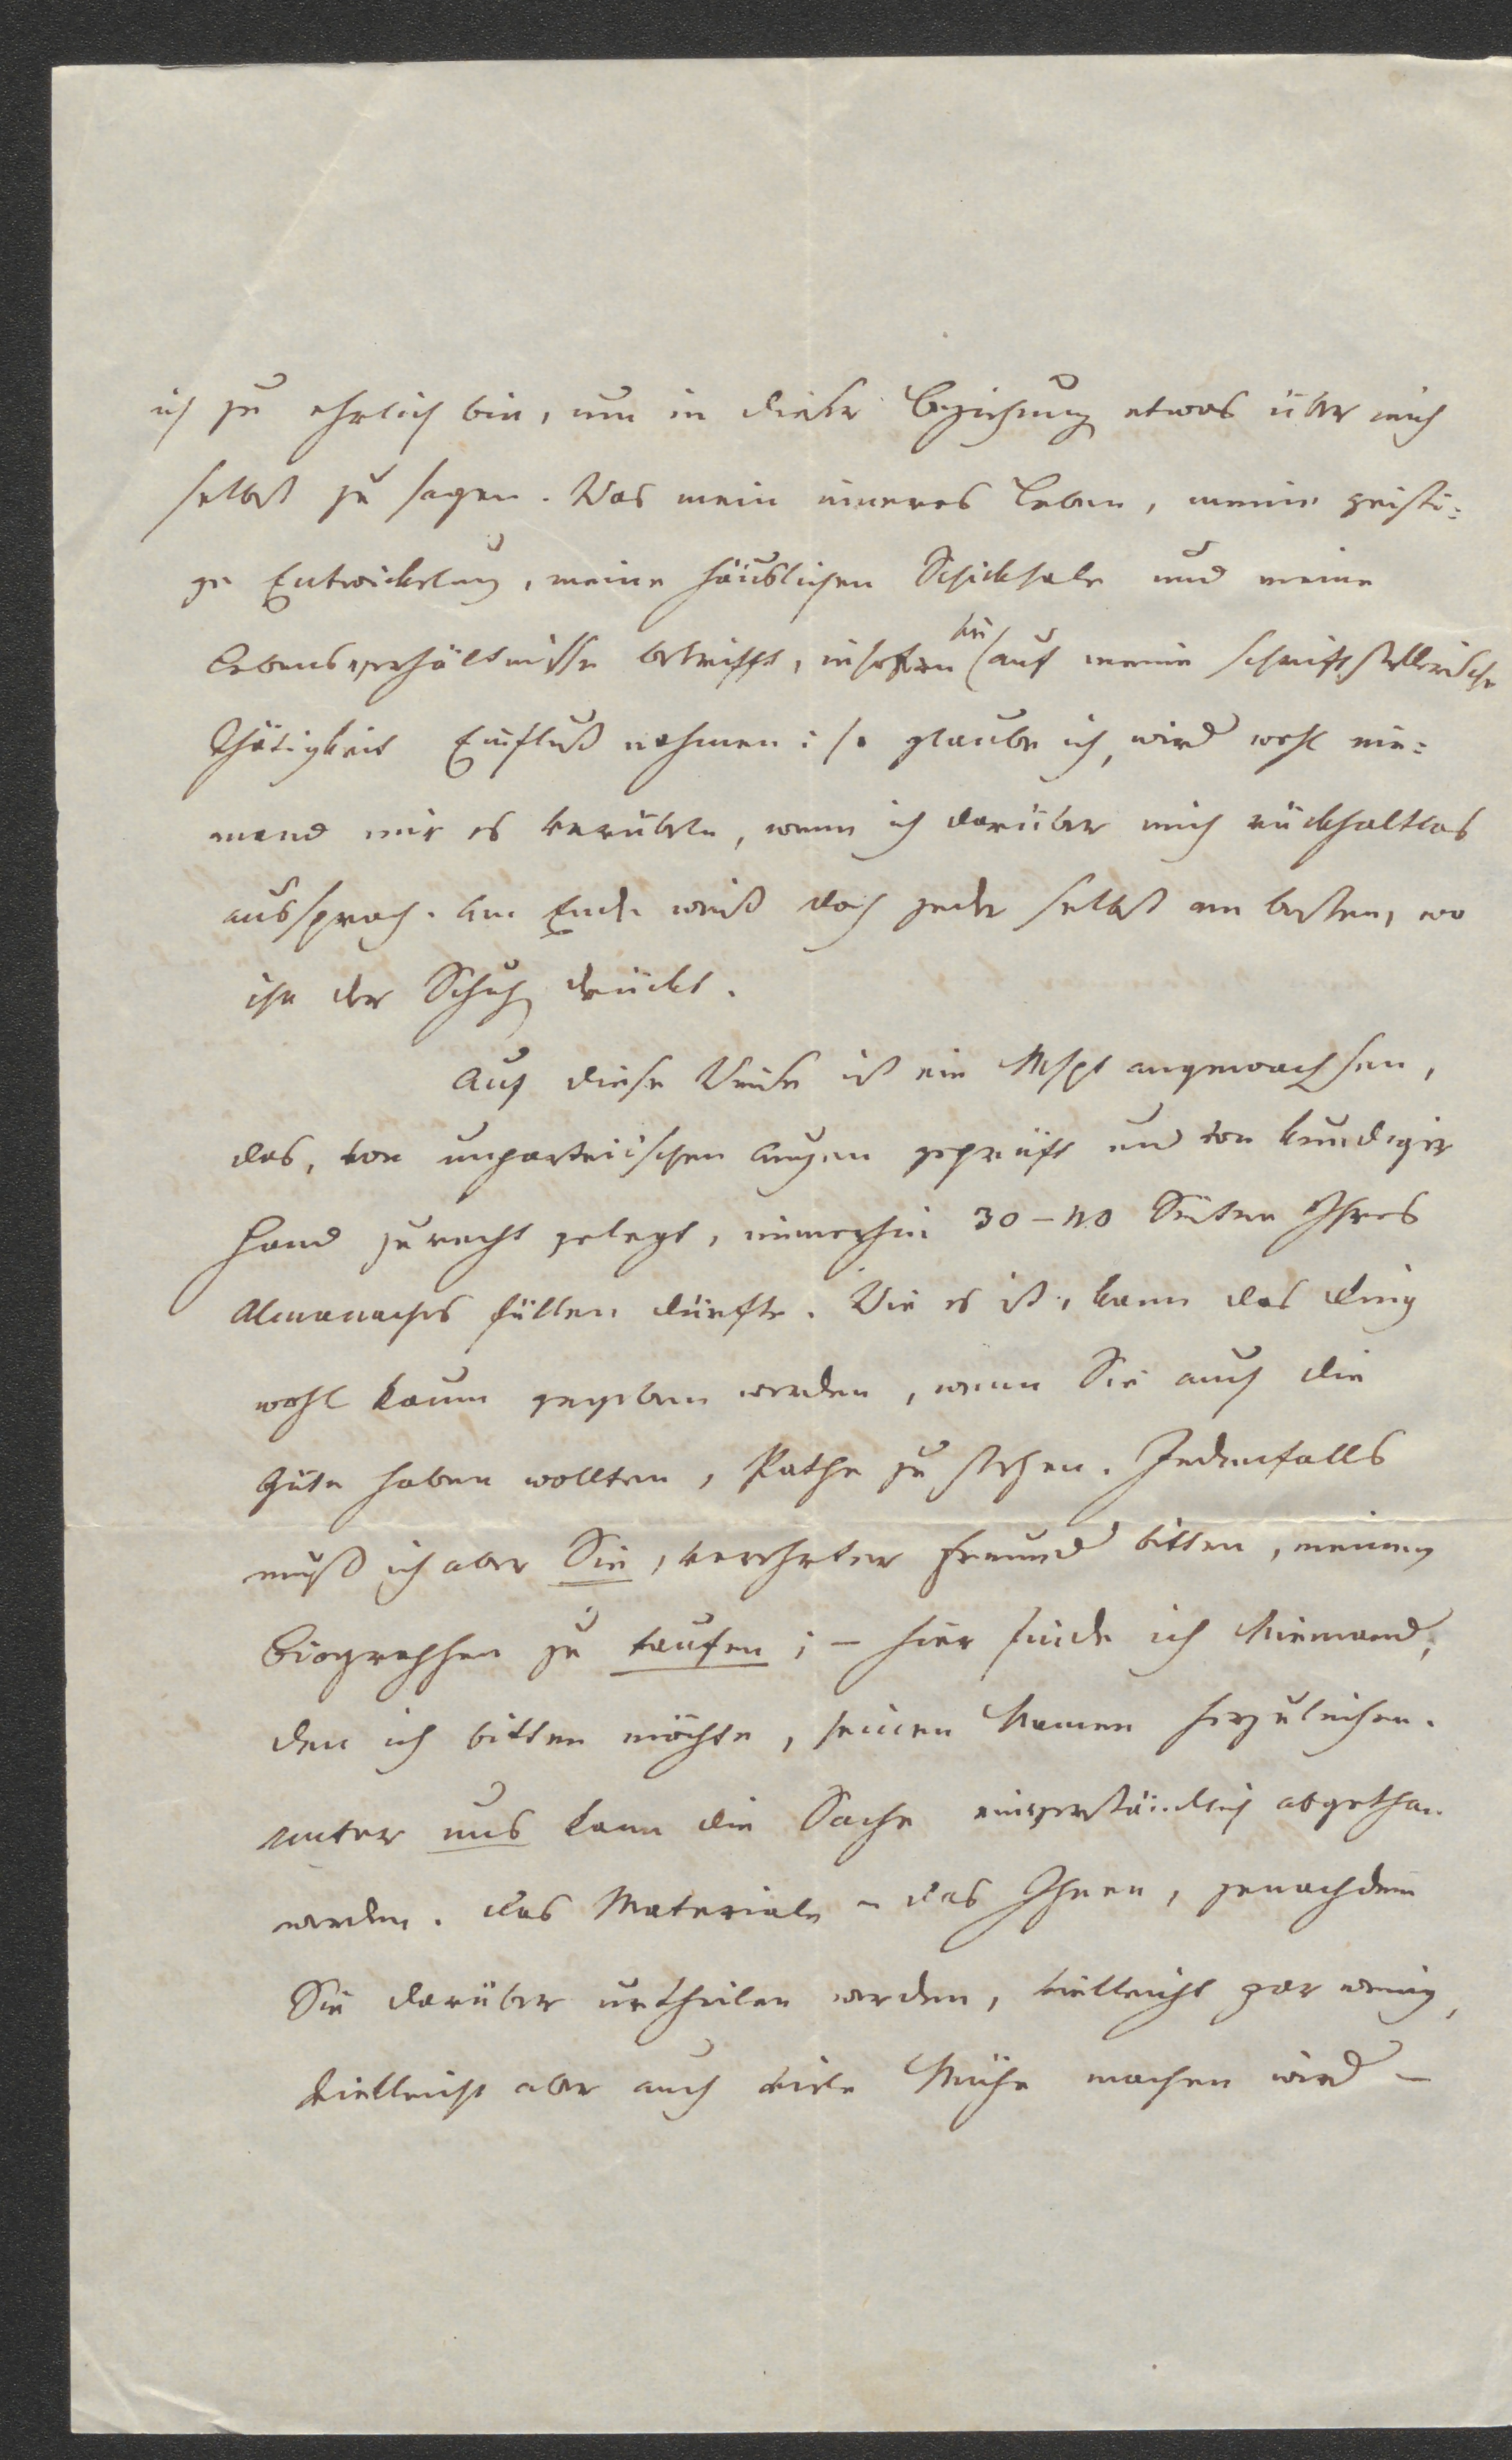 ich zu ehrlich bin, um in dieser Beziehung etwas über mich
selbst zu sagen. Was mein inneres Leben, meine geisti=
ge Entwickelung, meine häuslichen Schicksale und meine
Lebensverhältnisse betrifft, insofern sie auf meine schriftstellerische
Thätigkeit Einfluß nahmen: so glaube ich, wird wohl nie=
mand mir es verübeln, wenn ich darüber mich rückhaltlos
aussprach. Am Ende weiß doch jeder selbst am besten, wo
ihn der Schuh drückt.
Auf diese Weise ist ein Mspt angewachsen,
das, von unparteiischen Augen geprüft und von kundiger
Hand zurecht gelegt, immerhin 30–40 Seiten Ihres
Almanachs füllen dürfte. Wie es ist, kann das Ding
wohl kaum gegeben werden, wenn Sie auch die
Güte haben wollten, Pathe zu stehen. Jedenfalls
muß ich aber Sie, verehrter Freund bitten, meinen
Biographen zu taufen; – hier finde ich Niemand,
den ich bitten möchte, seinen Namen herzuleihen.
Unter uns kann die Sache einverständlich abgethan
werden. Das Materiale – das Ihnen, jenachdem
Sie darüber urtheilen werden, vielleicht gar wenig,
vielleicht aber auch viele Mühe machen wird –